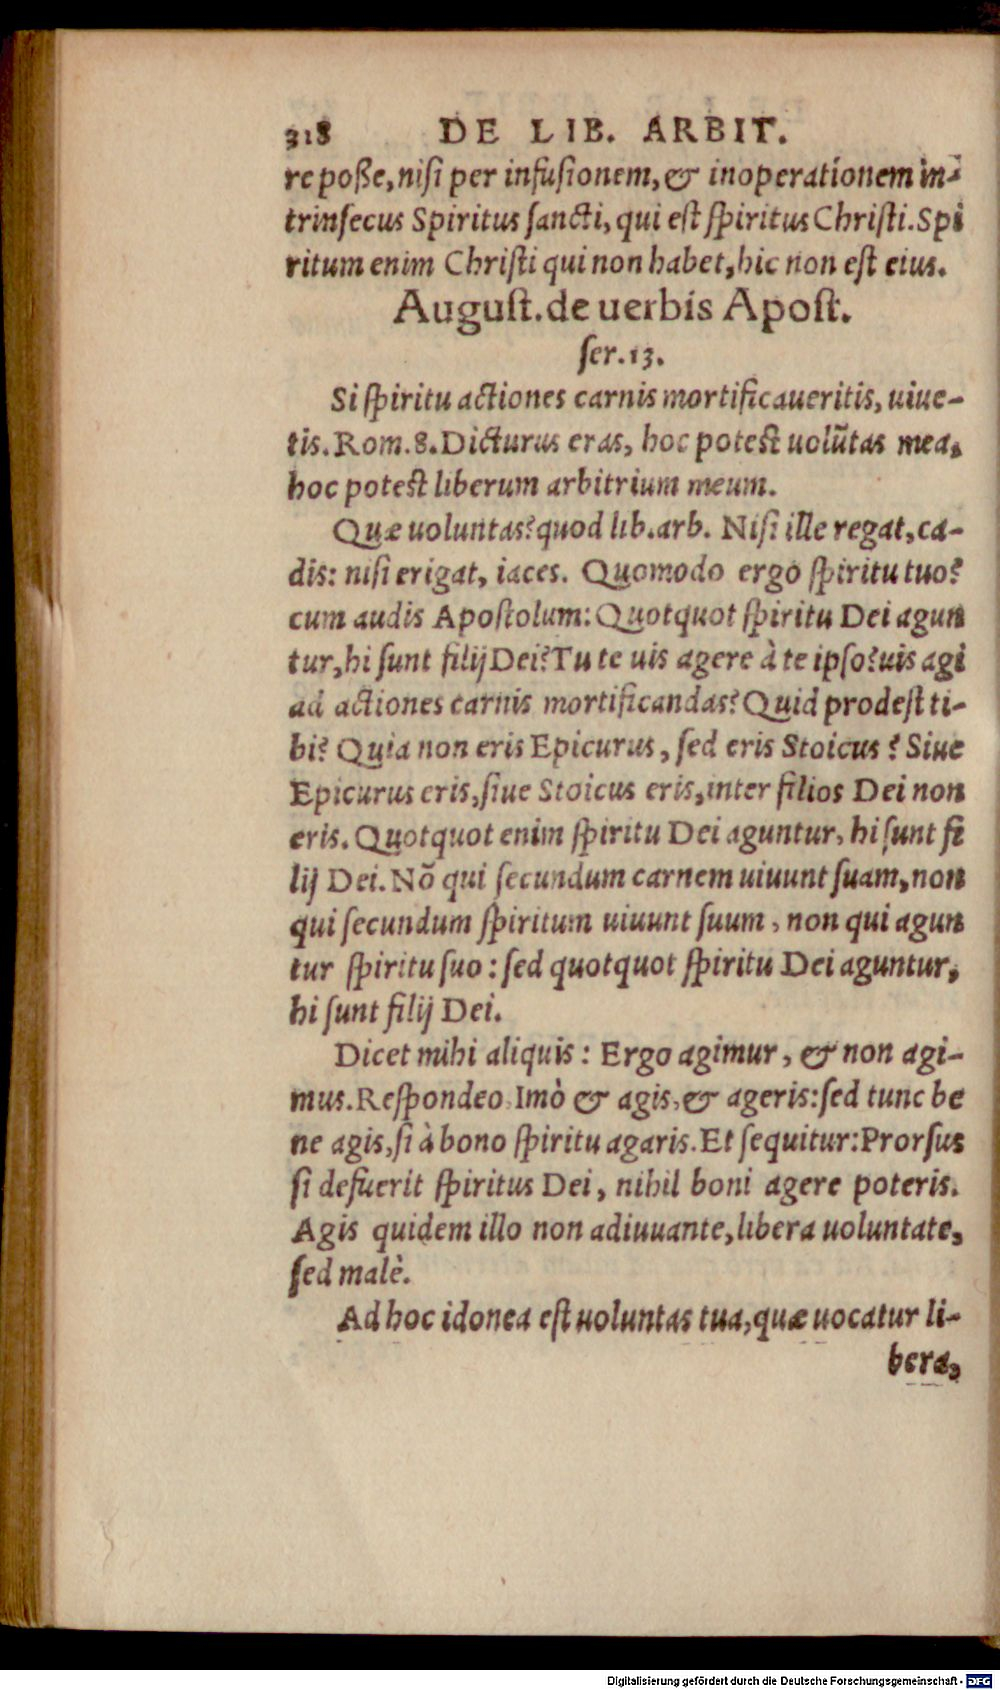 318 DE LIB. ARBIT.
re poße, nisi per infusionem, & inoperationem in-
trinsecus Spiritus sancti, qui est spiritus Christi. Spi
ritum enim Christi qui non habet, hic non est eius.
August. de uerbis Apost.
ser. 13.
Si spiritu actiones carnis mortificaueritis, uiue-
tis. Rom. 8. Dicturus eras, hoc potest uolũtas mea,
hoc potest liberum arbitrium meum.
Quæ uoluntas? quod lib. arb. Nisi ille regat, ca-
dis: nisi erigat, iaces. Quomodo ergo spiritu tuo?
cum audis Apostolum: Quotquot spiritu Dei agun
tur, hi sunt filij Dei? Tu te uis agere à te ipso? uis agi
ad actiones carnis mortificandas? Quid prodest ti-
bi? Quia non eris Epicurus, sed eris Stoicus? Siue
Epicurus eris, siue Stoicus eris, inter filios Dei non
eris. Quotquot enim spiritu Dei aguntur, hi sunt fi
lij Dei. Nõ qui secundum carnem uiuunt suam, non
qui secundum spiritum uiuunt suum, non qui agun
tur spiritu suo: sed quotquot spiritu Dei aguntur,
hi sunt filij Dei.
Dicet mihi aliquis: Ergo agimur, & non agi-
mus. Respondeo, Imò & agis, & ageris: sed tunc be
ne agis, si à bono spiritu agaris. Et sequitur: Prorsus
si defuerit spiritus Dei, nihil boni agere poteris.
Agis quidem illo non adiuuante, libera uoluntate,
sed malè.
Ad hoc idonea est uoluntas tua, quæ uocatur li-
bera,
Digitalisierung gefördert durch die Deutsche Forschungsgemeinschaft - DFG